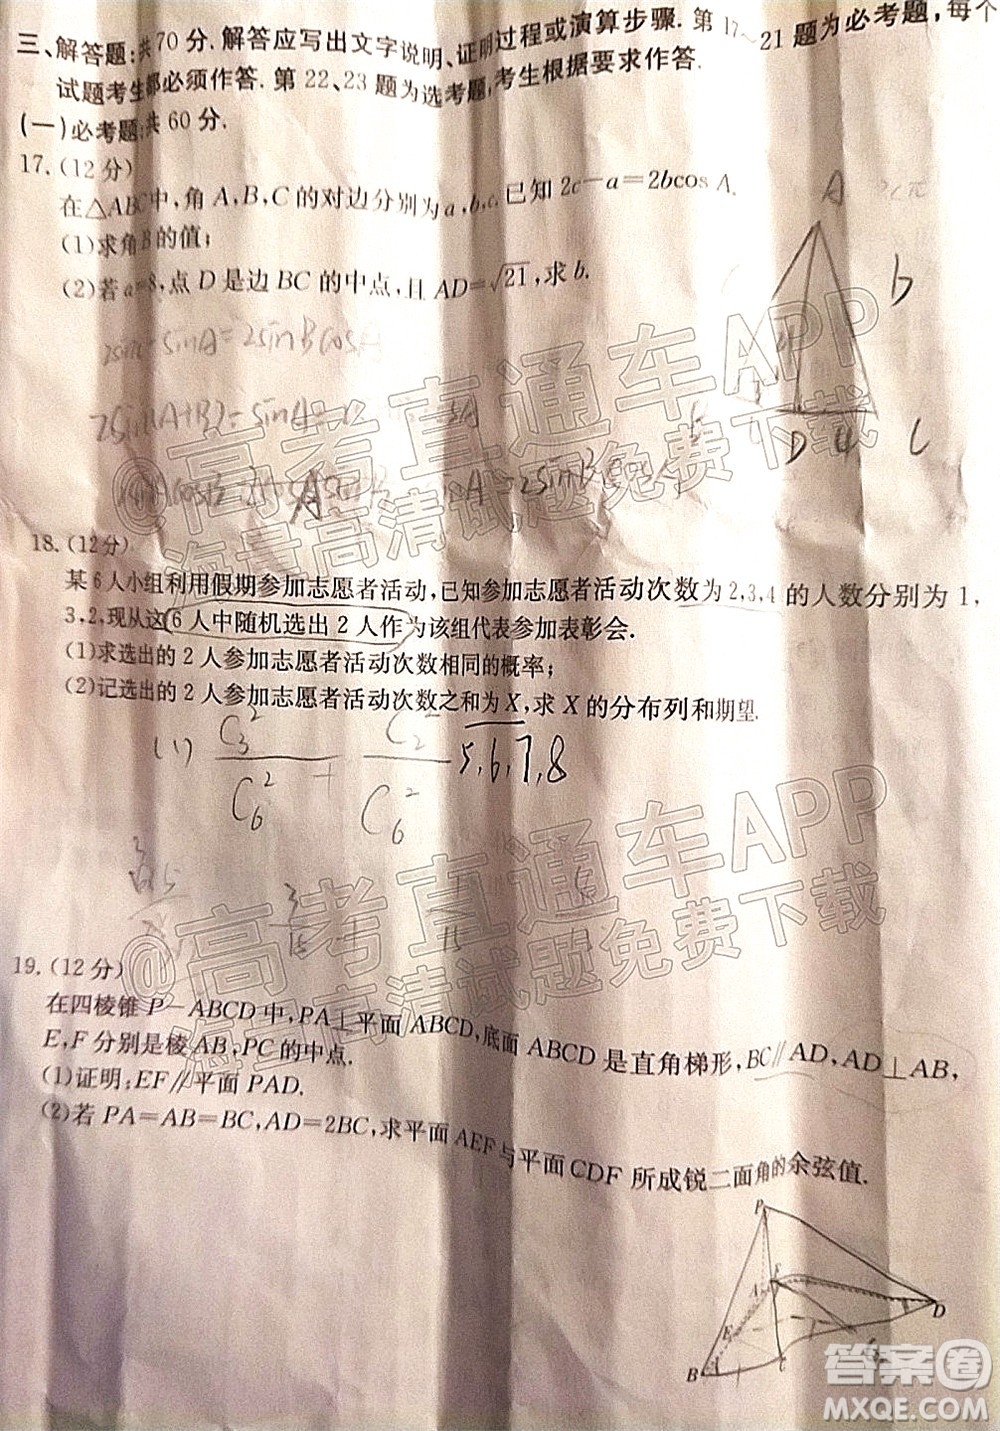 三、解答题:共70分.解答应写出文字说明、证明过程或演算步骤.第17~21题为必考题,每个
试题考生都必须作答.第22、23题为选考题,考生根据要求作答.
(一)必考题:共60分.
17.(12分)
在△ABC中,角A,B,C的对边分别为a,b,c,已知2c-a=2bcosA.
(1)求角B的值;
(2)若a=8,点D是边BC的中点,且AD=√21,求b.
A
b
D 4 C
2sinC-sinA=2sinBcosA
2sin(A+B)-sinA=
A=2sinBcos
18.(12分)
某6人小组利用假期参加志愿者活动,已知参加志愿者活动次数为2,3,4的人数分别为1,
3,2,现从这6人中随机选出2人作为该组代表参加表彰会.
(1)求选出的2人参加志愿者活动次数相同的概率;
(2)记选出的2人参加志愿者活动次数之和为X,求X的分布列和期望.
(1) C₃²/C₆² + C₂²/C₆² 5,6,7,8
3/15 + 1/15
19.(12分)
在四棱锥P-ABCD中,PA⊥平面ABCD,底面ABCD是直角梯形,BC∥AD,AD⊥AB,
E,F分别是棱AB,PC的中点.
(1)证明:EF∥平面PAD.
(2)若PA=AB=BC,AD=2BC,求平面AEF与平面CDF所成锐二面角的余弦值.
P
A F
D
E
B C
@高考直通车APP
海量高清试题免费下载
@高考直通车APP
海量高清试题免费下载
答案圈
MXQE.COM